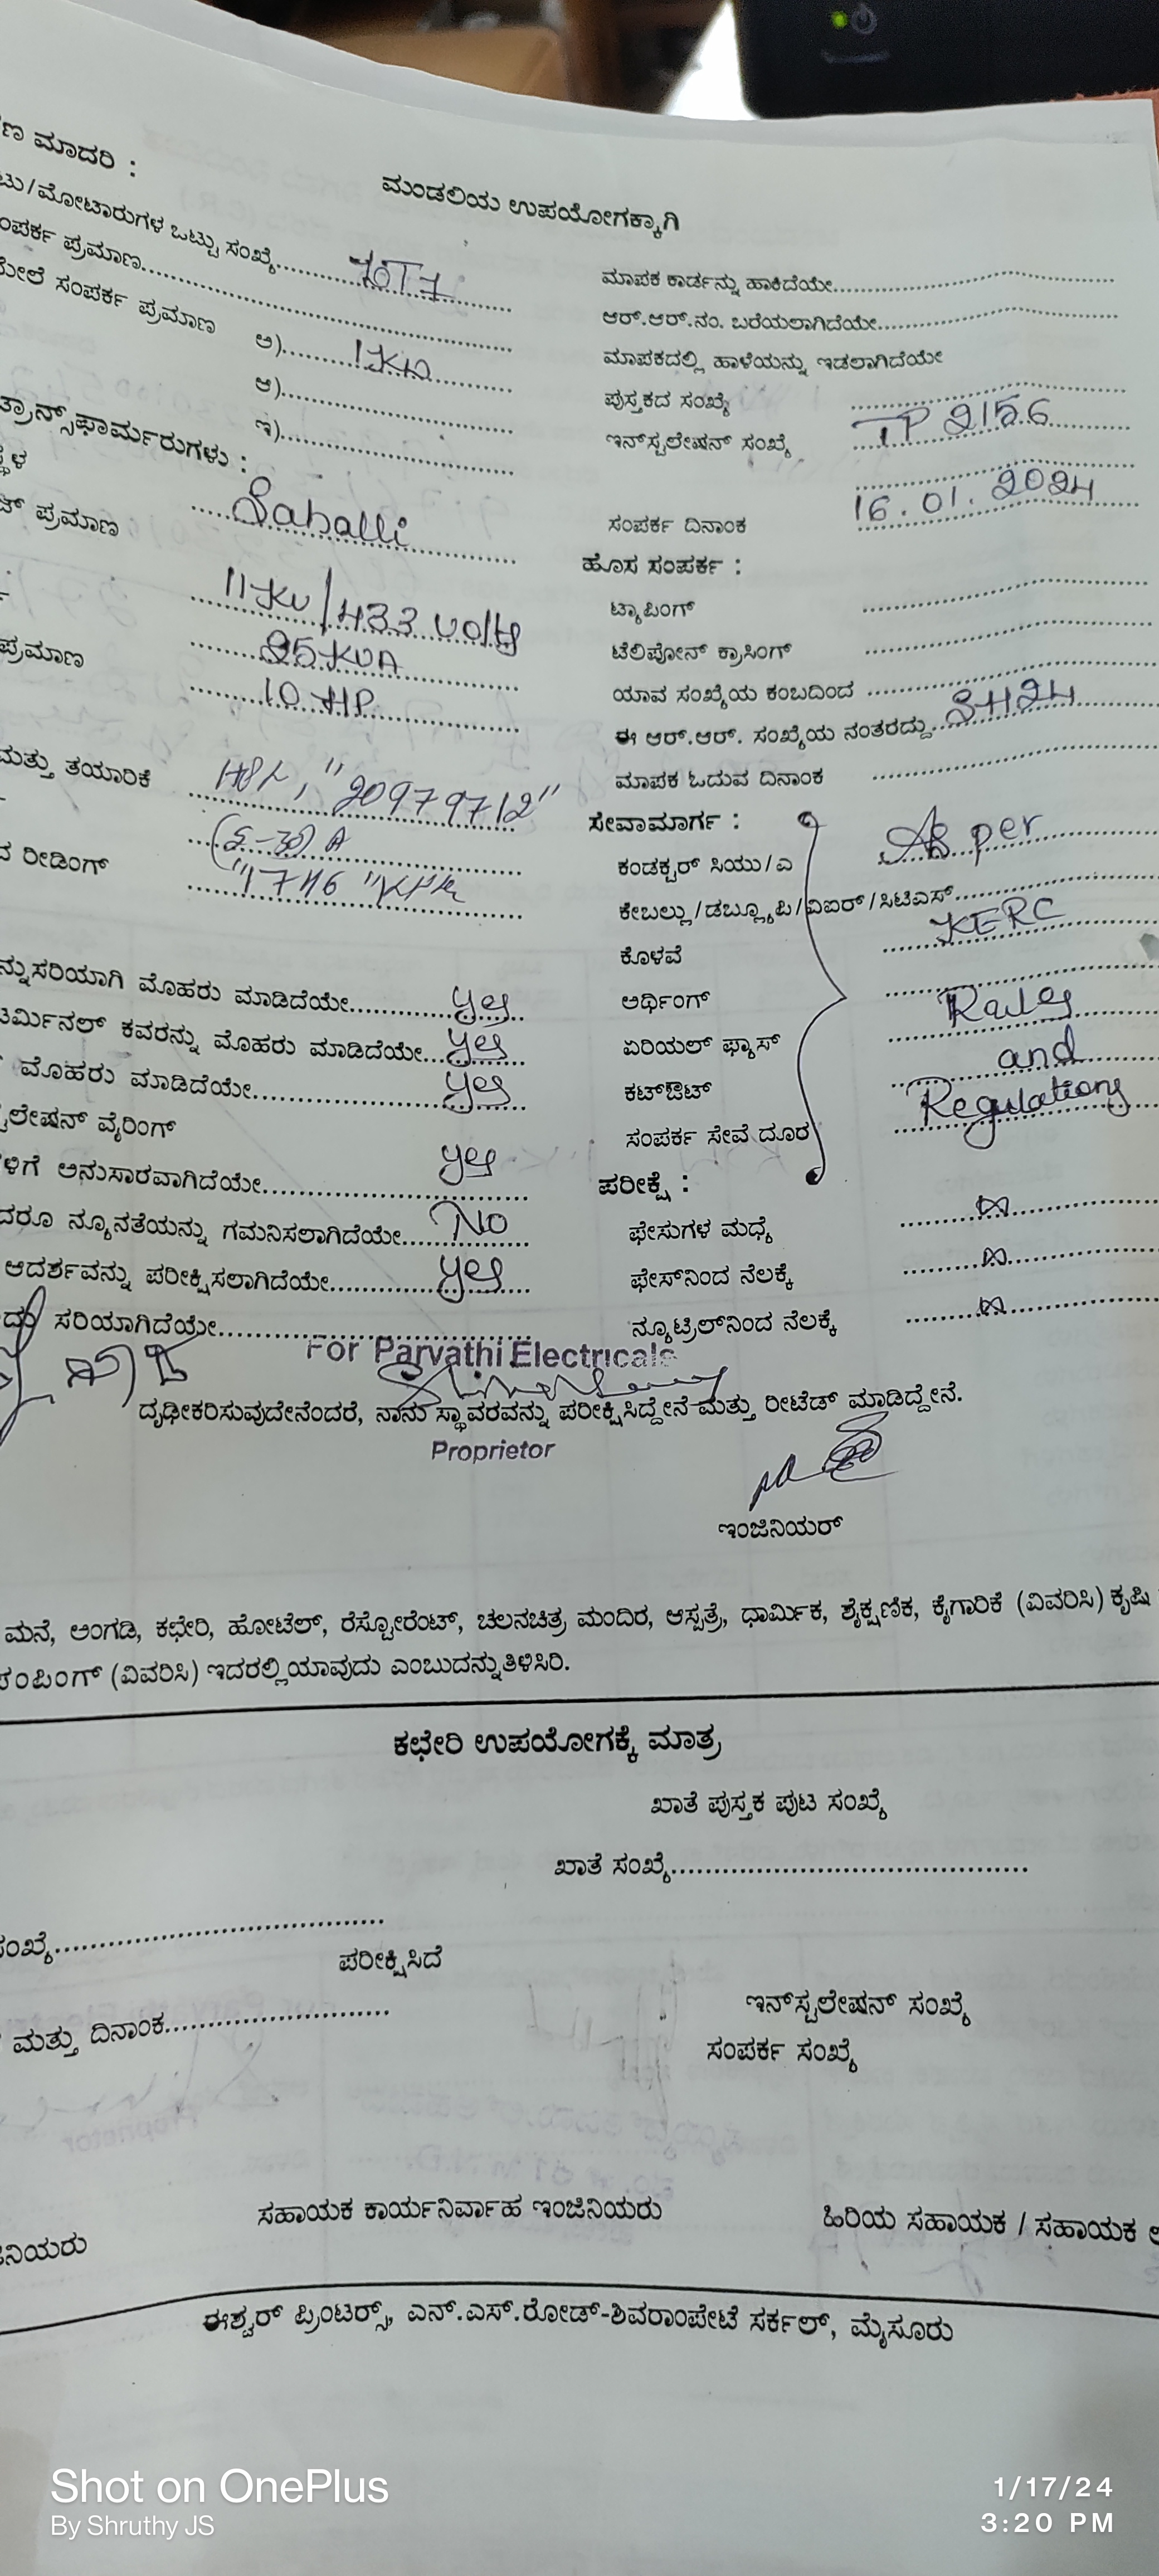 ಣ ಮಾದರಿ :
ಮಂಡಲಿಯ ಉಪಯೋಗಕ್ಕಾಗಿ
ಟು/ಮೋಟಾರುಗಳ ಒಟ್ಟು ಸಂಖ್ಯೆ..........
ಂಪರ್ಕ ಪ್ರಮಾಣ..........
ಮೇಲೆ ಸಂಪರ್ಕ ಪ್ರಮಾಣ ಅ)..........
ಆ)..........
ಇ)..........
ತ್ರಾನ್ಸ್‌ಫಾರ್ಮರುಗಳು :
ಸ್ಥಳ Saballi
ಜ್ ಪ್ರಮಾಣ 11 KV / 433 volts
25 KVA
ಪ್ರಮಾಣ 10 HP
ಮತ್ತು ತಯಾರಿಕೆ "20979712"
(5-30) A
ವ ರೀಡಿಂಗ್ "1746"
ನ್ನು ಸರಿಯಾಗಿ ಮೊಹರು ಮಾಡಿದೆಯೇ.......... yes
ಟರ್ಮಿನಲ್ ಕವರನ್ನು ಮೊಹರು ಮಾಡಿದೆಯೇ... yes
ಮೊಹರು ಮಾಡಿದೆಯೇ.......... yes
ಲೇಷನ್ ವೈರಿಂಗ್
ಳಿಗೆ ಅನುಸಾರವಾಗಿದೆಯೇ.......... yes
ದರೂ ನ್ಯೂನತೆಯನ್ನು ಗಮನಿಸಲಾಗಿದೆಯೇ..... No
ಆದರ್ಶವನ್ನು ಪರೀಕ್ಷಿಸಲಾಗಿದೆಯೇ.......... yes
ದು ಸರಿಯಾಗಿದೆಯೇ..........
ಮಾಪಕ ಕಾರ್ಡನ್ನು ಹಾಕಿದೆಯೇ..........
ಆರ್.ಆರ್.ನಂ. ಬರೆಯಲಾಗಿದೆಯೇ..........
ಮಾಪಕದಲ್ಲಿ ಹಾಳೆಯನ್ನು ಇಡಲಾಗಿದೆಯೇ
ಪುಸ್ತಕದ ಸಂಖ್ಯೆ ..........
ಇನ್‌ಸ್ಟಲೇಷನ್ ಸಂಖ್ಯೆ TP 2156
ಸಂಪರ್ಕ ದಿನಾಂಕ 16.01.2024
ಹೊಸ ಸಂಪರ್ಕ :
ಟ್ಯಾಪಿಂಗ್ ..........
ಟೆಲಿಪೋನ್ ಕ್ರಾಸಿಂಗ್ ..........
ಯಾವ ಸಂಖ್ಯೆಯ ಕಂಬದಿಂದ ..........
ಈ ಆರ್.ಆರ್. ಸಂಖ್ಯೆಯ ನಂತರದ್ದು.... SH24
ಮಾಪಕ ಓದುವ ದಿನಾಂಕ ..........
ಸೇವಾಮಾರ್ಗ :
ಕಂಡಕ್ಟರ್ ಸಿಯು/ಎ As per
ಕೇಬಲ್ಲು/ಡಬ್ಲ್ಯೂಪಿ/ವಿಐರ್/ಸಿಟಿಎಸ್..........
ಕೊಳವೆ KERC
ಅರ್ಥಿಂಗ್ Rules
ಏರಿಯಲ್ ಫ್ಯೂಸ್ and
ಕಟ್‌ಔಟ್ Regulations
ಸಂಪರ್ಕ ಸೇವೆ ದೂರ
ಪರೀಕ್ಷೆ :
ಫೇಸುಗಳ ಮಧ್ಯೆ
ಫೇಸ್‌ನಿಂದ ನೆಲಕ್ಕೆ
ನ್ಯೂಟ್ರಲ್‌ನಿಂದ ನೆಲಕ್ಕೆ
For Parvathi Electricals
ದೃಢೀಕರಿಸುವುದೇನೆಂದರೆ, ನಾನು ಸ್ಥಾವರವನ್ನು ಪರೀಕ್ಷಿಸಿದ್ದೇನೆ ಮತ್ತು ರೀಟೆಡ್ ಮಾಡಿದ್ದೇನೆ.
Proprietor
ಇಂಜಿನಿಯರ್
ಮನೆ, ಅಂಗಡಿ, ಕಛೇರಿ, ಹೋಟೆಲ್, ರೆಸ್ಟೋರೆಂಟ್, ಚಲನಚಿತ್ರ ಮಂದಿರ, ಆಸ್ಪತ್ರೆ, ಧಾರ್ಮಿಕ, ಶೈಕ್ಷಣಿಕ, ಕೈಗಾರಿಕೆ (ವಿವರಿಸಿ) ಕೃಷಿ
ಪಂಪಿಂಗ್ (ವಿವರಿಸಿ) ಇದರಲ್ಲಿ ಯಾವುದು ಎಂಬುದನ್ನು ತಿಳಿಸಿರಿ.
ಕಛೇರಿ ಉಪಯೋಗಕ್ಕೆ ಮಾತ್ರ
ಖಾತೆ ಪುಸ್ತಕ ಪುಟ ಸಂಖ್ಯೆ
ಖಾತೆ ಸಂಖ್ಯೆ..........
ಸಂಖ್ಯೆ..........
ಪರೀಕ್ಷಿಸಿದೆ
ಇನ್‌ಸ್ಟಲೇಷನ್ ಸಂಖ್ಯೆ
ಮತ್ತು ದಿನಾಂಕ..........
ಸಂಪರ್ಕ ಸಂಖ್ಯೆ
ಸಹಾಯಕ ಕಾರ್ಯನಿರ್ವಾಹ ಇಂಜಿನಿಯರು
ಹಿರಿಯ ಸಹಾಯಕ / ಸಹಾಯಕ
ನಿಯರು
ಈಶ್ವರ್ ಪ್ರಿಂಟರ್ಸ್, ಎನ್.ಎಸ್.ರೋಡ್-ಶಿವರಾಂಪೇಟೆ ಸರ್ಕಲ್, ಮೈಸೂರು
Shot on OnePlus
By Shruthy JS
1/17/24
3:20 PM